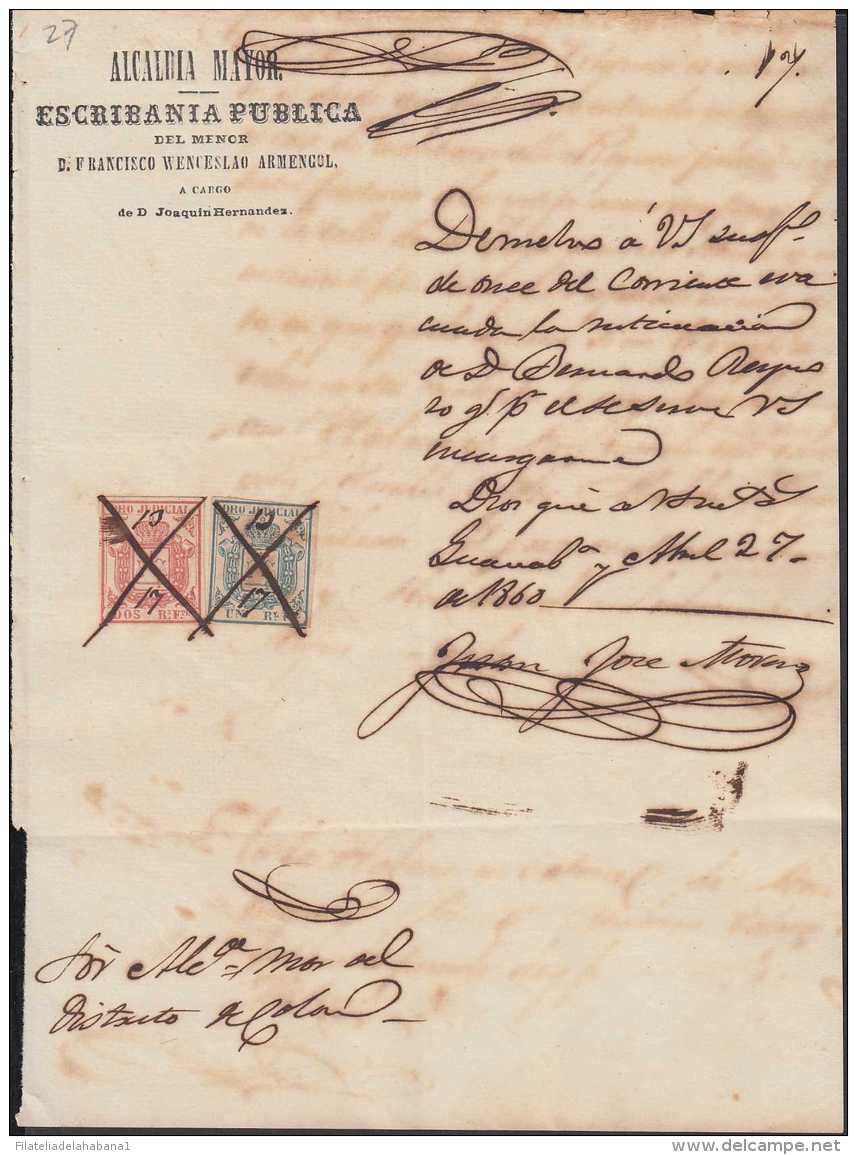 27
17.
ALCALDIA MAYOR.
ESCRIBANIA PUBLICA
DEL MENOR
D. FRANCISCO WENCESLAO ARMENGOL,
A CARGO
de D Joaquin Hernandez.
Devuelvo á VS su ofº
de once del Corriente eva
cuada la notificacion
de D Bernardo
VS
encargarme
Dios gue a VS
Guanabª y Abril 27
de 1860
Juan Jose Moreno
ORO JUDICIAL
13
17
DOS Rs Fs
ORO JUDICIAL
13
17
UN Rl
Sōr Alcde Mor del
Distrito de Colon
Filateliadelahabana1
delcampe.net